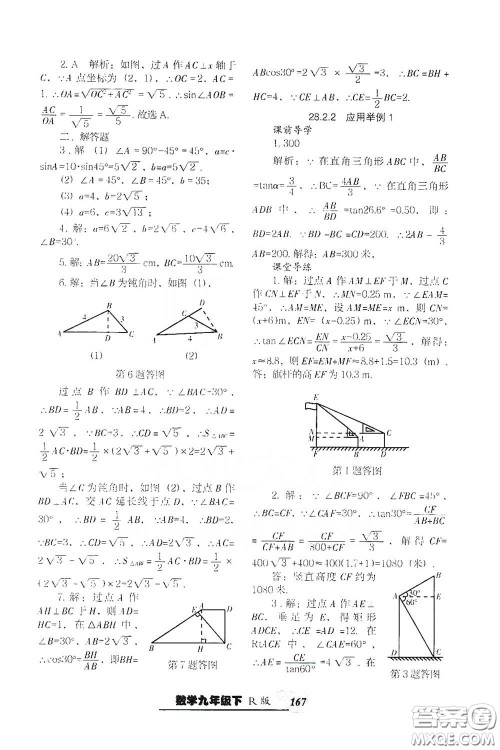 2. A　解析：如图，过 A 作 AC⊥x 轴于
C，∵A 点坐标为（2，1），∴OC=2，AC=
1. ∴OA=√(OC²+AC²)=√5. ∴sin∠AOB=
AC/OA=1/√5=√5/5. 故选A.
二、解答题
3. 解（1）∠A=90°-45°=45°，a=c·
sinA=10·sin45°=5√2，b=a=5√2.
（2）∠A=45°，∠B=45°，b=35.
（3）a=4，b=2.
（4）a=6，c=3√13；
4. 解：a=6√2，b=2√6，c=4√6，
∠B=30°.
5. 解：AB=20√3/3 cm，BC=10√3/3 cm.
6. 解：当∠B为钝角时，如图（1），
（1）　（2）
第6题答图
过点 B 作 BD⊥AC，∵∠BAC=30°，
∴BD=1/2 AB，∵AB=4，∴BD=2，∴AD=
2√3，∵BC=3，∴CD=√5，∴S△ABC=1/2
AC·BD=1/2×(2√3+√5)×2=2√3+
√5；
当∠C为钝角时，如图（2），过点B作
BD⊥AC，交AC延长线于点D，∵∠BAC=
30°，∴BD=1/2 AB，∵AB=4，∴BD=2，
∵BC=3，∴CD=√5，∴AD=2√3，∴AC
=2√3-√5，∴S△ABC=1/2 AC·BD=1/2×
(2√3-√5)×2=2√3-√5.
7. 解：过点A作
AH⊥BC于H，则AD=
HC=1，在△ABH中，
∠B=30°，AB=2√3，
∴cos30°=BH/AB，即BH=
第7题答图
ABcos30°=2√3×√3/2=3，∴BC=BH+
HC=4，∵CE⊥AB，∴CE=1/2BC=2.
28.2.2　应用举例1
课前导学
1. 300
解析：∵在直角三角形ABC中，AB/BC
=tanα=3/4，∴BC=4AB/3，∵在直角三角形
ADB中，∴AB/BD=tan26.6°=0.50，即：
BD=2AB. ∵BD-BC=CD=200. ∴2AB-4/3
AB=200. 解得：AB=300米，
课堂导练
1. 解：过点A作AM⊥EF于M，过点C
作CN⊥EF于N，∴MN=0.25 m，∵∠EAM=
45°，∴AM=ME，设AM=ME=x m，则CN=
(x+6)m，EN=(x-0.25) m，∵∠ECN=30°，
∴tan∠ECN=EN/CN=x-0.25/x+6=√3/3，解得：
x≈8.8，则EF=EM+MF≈8.8+1.5=10.3（m）.
答：旗杆的高EF为10.3 m.
第1题答图
2. 解：∵∠BCF=90°，∠FBC=45°，
∴BC=CF，∵∠CAF=30°，∴tan30°=CF/AB+BC
=CF/CF+AB=CF/800+CF=√3/3，解得CF=
400√3+400≈400(1.7+1)=1080（米）.
答：竖直高度CF约为
1080米.
3. 解：过点A作AE⊥
BC，垂足为E，得矩形
ADCE，∴CE=AD=12. 在
Rt△ACE中，∵∠EAC=60°，
∴AE=CE/tan60°=4√3. 在
第3题答图
数学九年级下　R版　167